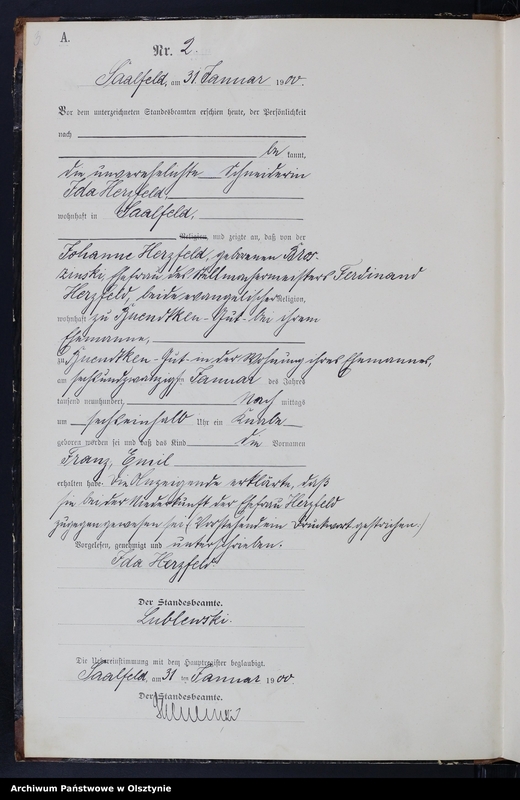 A.
Nr. 2.
Saalfeld, am 31 Januar 1900.
Vor dem unterzeichneten Standesbeamten erschien heute, der Persönlichkeit
nach
bekannt,
die unverehelichte Schneiderin
Ida Herzfeld,
wohnhaft in Saalfeld,
Religion, und zeigte an, daß von der
Johanne Herzfeld, geborenen
Ehefrau des Stellmachermeisters Ferdinand
Herzfeld, beide evangelischer Religion,
wohnhaft zu Kuendtken-Gut bei ihrem
Ehemanne,
zu Kuendtken-Gut in der Wohnung ihres Ehemannes,
am sechsundzwanzigsten Januar des Jahres
tausend neunhundert, Nachmittags
um sechseinhalb Uhr ein Knabe
geboren worden sei und daß das Kind die Vornamen
Franz, Emil
erhalten habe. Die Anzeigende erklärte, daß
sie bei der Niederkunft der Ehefrau Herzfeld
zugegen gewesen sei (Vorstehend ein Druckwort gestrichen.)
Vorgelesen, genehmigt und unterschrieben.
Ida Herzfeld.
Der Standesbeamte.
Lublewski.
Die Uebereinstimmung mit dem Hauptregister beglaubigt.
Saalfeld, am 31 ten Januar 1900
Der Standesbeamte.
Archiwum Państwowe w Olsztynie